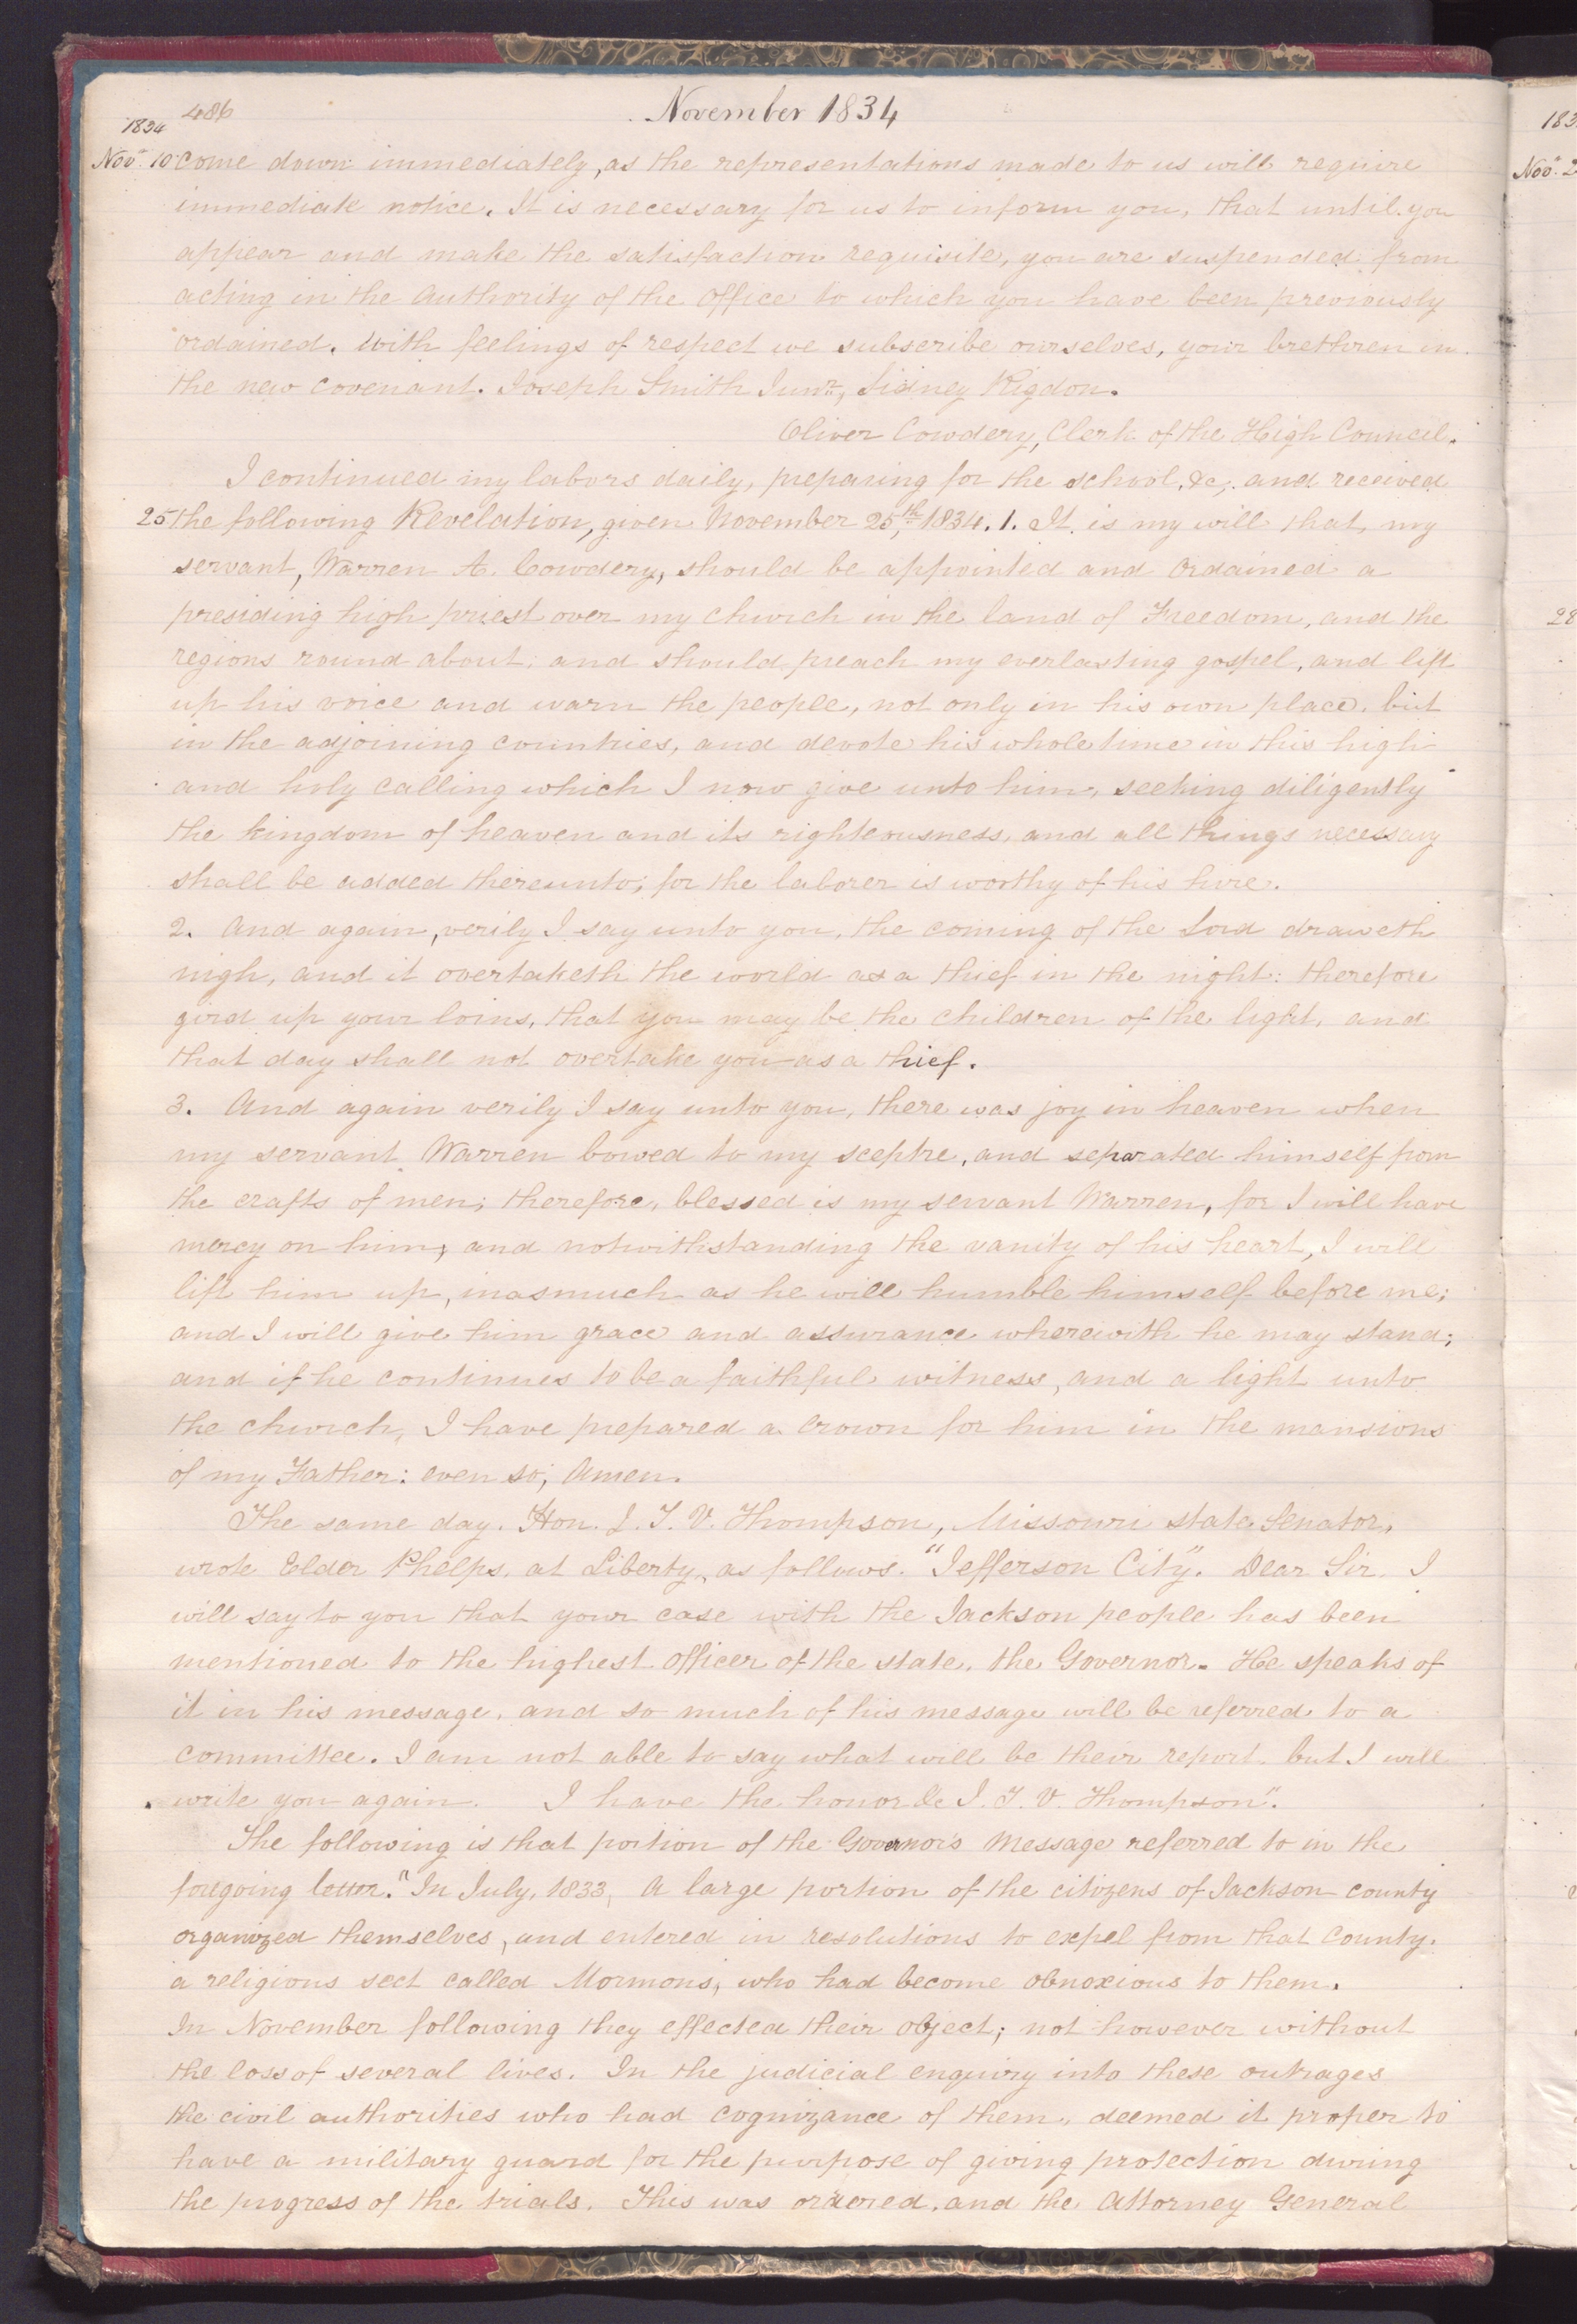 486
November 1834
1834
Nov. 10 come down immediately, as the representations made to us will require
immediate notice. It is necessary for us to inform you, that until you
appear and make the satisfaction requisite, you are suspended from
acting in the authority of the office to which you have been previously
ordained. With feelings of respect we subscribe ourselves, your brethren in
the new covenant. Joseph Smith Junr, Sidney Rigdon.
Oliver Cowdery, Clerk of the High Council.
I continued my labors daily, preparing for the school, &c, and received
25 the following Revelation, given November 25th, 1834. 1. It is my will that my
servant, Warren A. Cowdery, should be appointed and ordained a
presiding high priest over my church in the land of Freedom, and the
regions round about; and should preach my everlasting gospel, and lift
up his voice and warn the people, not only in his own place, but
in the adjoining countries, and devote his whole time in this high
and holy calling which I now give unto him, seeking diligently
the kingdom of heaven and its righteousness, and all things necessary
shall be added thereunto; for the laborer is worthy of his hire.
2. And again, verily I say unto you, the coming of the Lord draweth
nigh, and it overtaketh the world as a thief in the night: therefore
gird up your loins, that you may be the children of the light, and
that day shall not overtake you as a thief.
3. And again verily I say unto you, there was joy in heaven when
my servant Warren bowed to my sceptre, and separated himself from
the crafts of men; therefore, blessed is my servant Warren, for I will have
mercy on him; and notwithstanding the vanity of his heart, I will
lift him up, inasmuch as he will humble himself before me;
and I will give him grace and assurance wherewith he may stand;
and if he continues to be a faithful witness, and a light unto
the church, I have prepared a crown for him in the mansions
of my Father: even so; Amen.
The same day. Hon. J. T. V. Thompson, Missouri state Senator,
wrote Elder Phelps, at Liberty, as follows. "Jefferson City". Dear Sir. I
will say to you that your case with the Jackson people has been
mentioned to the highest officer of the state, the Governor. He speaks of
it in his message, and so much of his message will be referred to a
committee. I am not able to say what will be their report, but I will
write you again. I have the honor &c J. T. V. Thompson".
The following is that portion of the Governor's Message referred to in the
foregoing letter. "In July, 1833, a large portion of the citizens of Jackson county
organized themselves, and entered in resolutions to expel from that county,
a religious sect called Mormons, who had become obnoxious to them.
In November following they effected their object; not however without
the loss of several lives. In the judicial enquiry into these outrages
the civil authorities who had cognizance of them, deemed it proper to
have a military guard for the purpose of giving protection during
the progress of the trials. This was ordered, and the Attorney General
183
Nov. 2
28